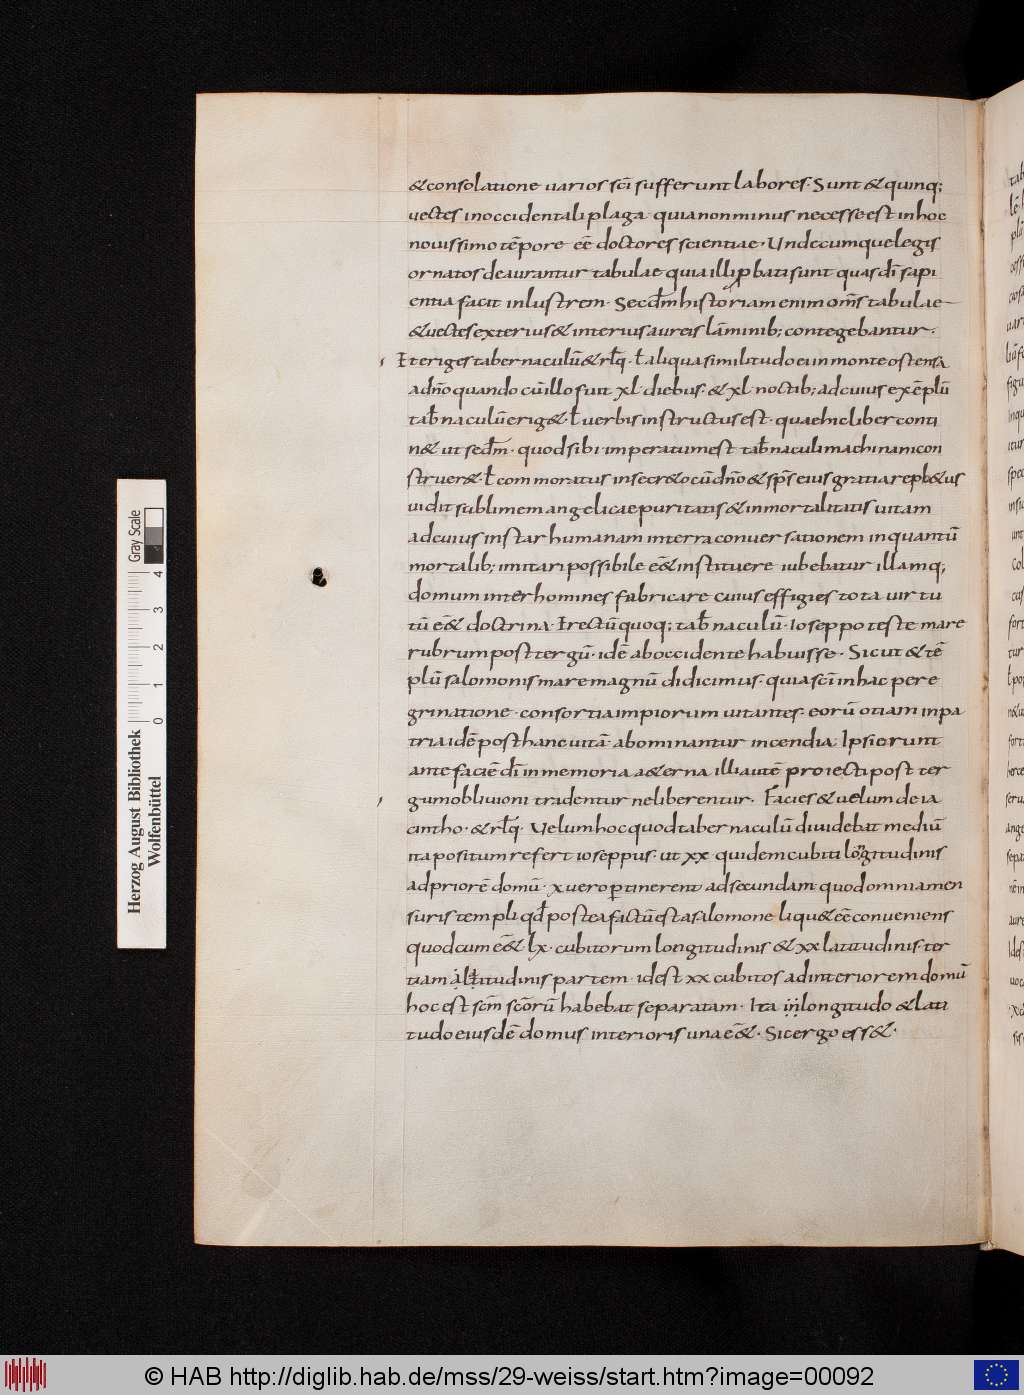 &consolatione uarios sc̄i sufferunt labores· Sunt & quinq;
uectes inoccidentali plaga quianonminus necesseest inhoc
nouissimo tēpore eē doctores scientiae· Undecumquelegis
ornatos deaurantur tabulae quia illi ꝓbati sunt quas dī sapi
entia facit inlustrem· Secdm̄ historiam enim om̄s tabulae
&uectes exterius & interius aureis lām̄inib; contegebantur·
Et eriges tabernaculū & rlq̄· ł aliqua similitudo ei in monte ostensa
a dn̄o quando cū illo fuit xl· diebus· & xl noctib; ad cuius exēplū
tab̄naculū erig& ł uerbis instructus est· quae hic liber conti
n& ut secdm̄· quod sibi imperatum est tab̄naculi machinam con
struer&· ł commoratus in secr&o cū dn̄o & sps̄ eius gratia repl&us
uidit sublimem angelicae puritatis & inmortalitatis uitam
ad cuius instar humanam in terra conuersationem in quantū
mortalib; imitari possibile ē & instituere iubebatur illamq;
domum inter homines fabricare cuius effigies tota uirtu
tū ē & doctrina· Erectū quoq; tab̄naculū· Ioseppo teste mare
rubrum post tergū· idē ab occidente habuisse· Sicut & tē
plū salomonis mare magnū didicimus· quia sc̄i in hac pere
grinatione· consortia impiorum uitantes· eorū &iam in pa
tria idē post hanc uitā· abominantur incendia Ipsi erunt
ante faciē dī in memoria a&erna illi autē proiecti post ter
gum obliuioni tradentur ne liberentur· Facies & uelum de ia
cintho· & rlq̄· Uelum hoc quod tabernaculū diuidebat mediū
ita positum refert ioseppus· ut xx quidem cubiti longitudinis
ad priorē domū· x uero ꝑtinerent ad secundam quod omnia men
suris templi qd̄ postea factū est a salomone liqu& eē conueniens
quod cum ēē& lx· cubitorum longitudinis & xx latitudinis ter
tiam altitudinis partem· id est xx cubitos ad interiorem domū
hoc est sc̄m sc̄orū habebat separatam· Ita iii longitudo & lati
tudo eiusdē domus interioris una eē&· Sic ergo ess&·
Herzog August Bibliothek
Wolfenbüttel
0 1 2 3 4
Gray Scale
© HAB http://diglib.hab.de/mss/29-weiss/start.htm?image=00092